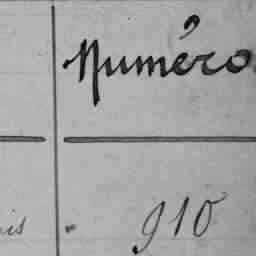 Numéro
is " 910